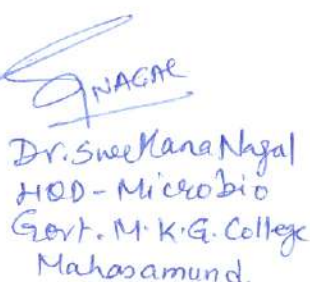 NAGAL
Dr. Swetlana Nagal
HOD - Microbio
Govt. M.K.G. College
Mahasamund.